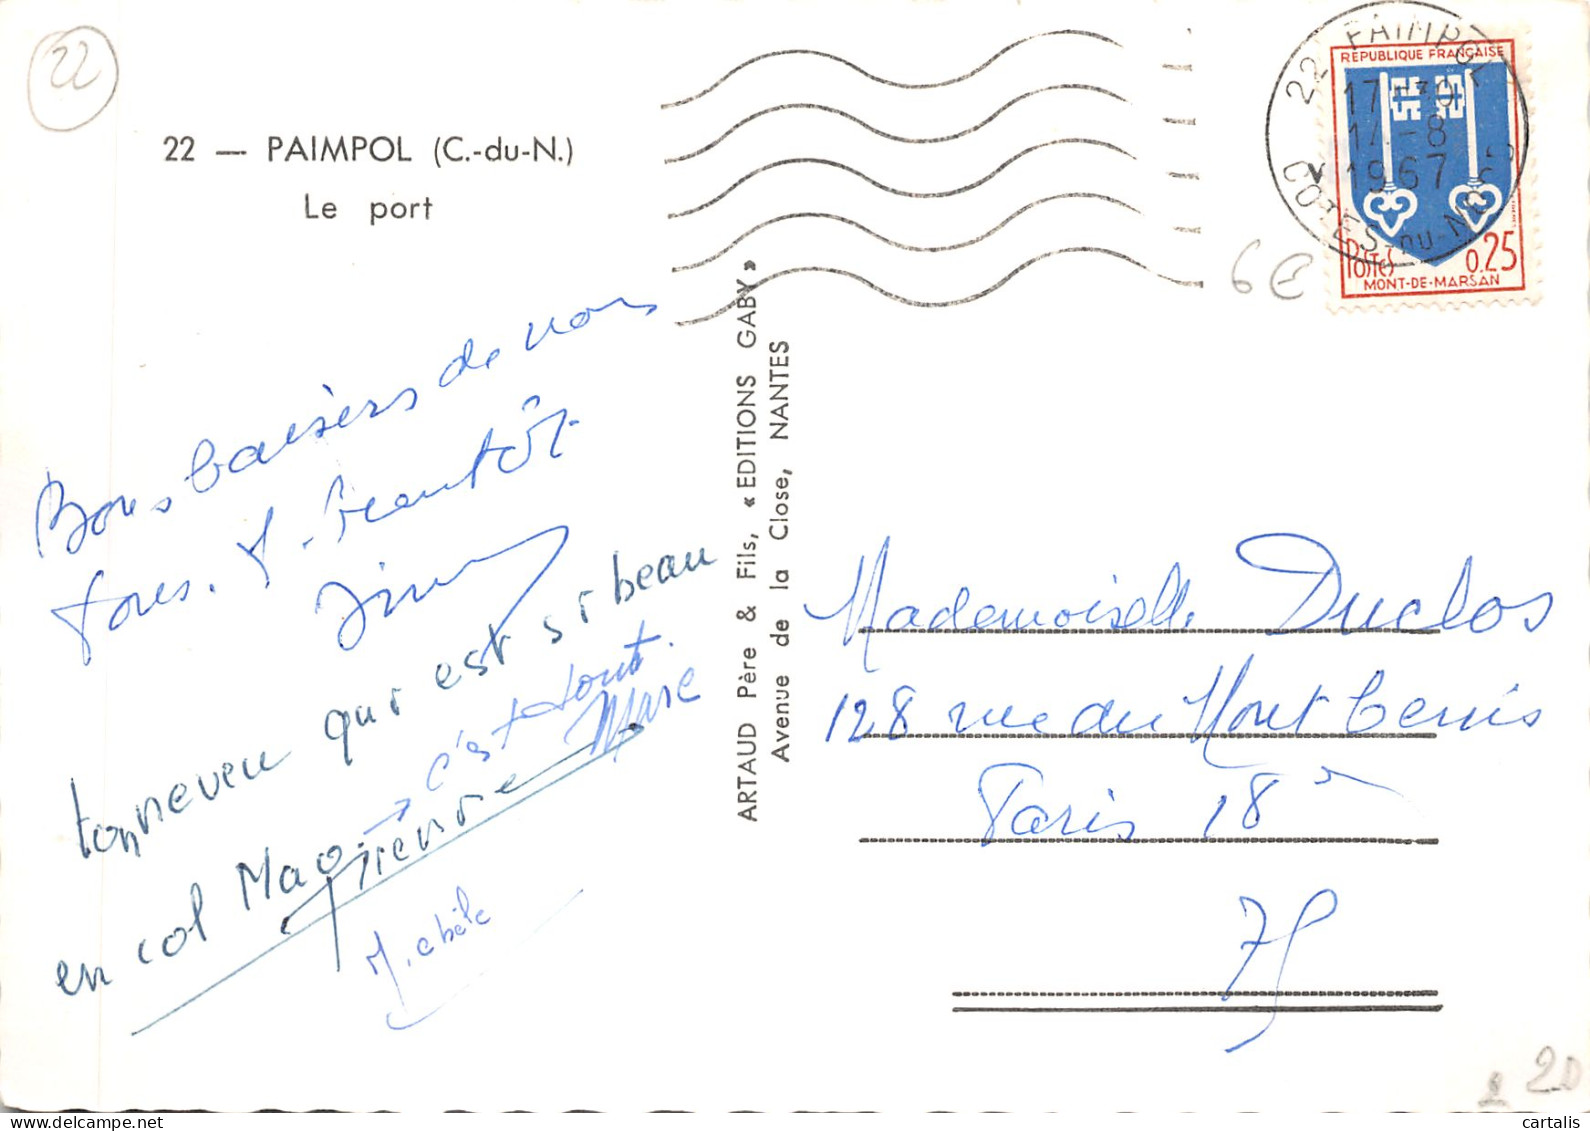 22
22 — PAIMPOL (C.-du-N.)
Le port
22 PAIMPOL
17
-8
1967
COTES-DU-NORD
REPUBLIQUE FRANÇAISE
POSTES
0.25
MONT-DE-MARSAN
6€
Bons baisers de nous
tous. A bientôt
ton neveu qui est si beau
en col Mao → c'est tout.
Marc
Pierre
Michèle
ARTAUD Père & Fils, « EDITIONS GABY »
Avenue de la Close, NANTES
Mademoiselle Duclos
128 rue du Mont Cenis
Paris 18
75
20
cartalis